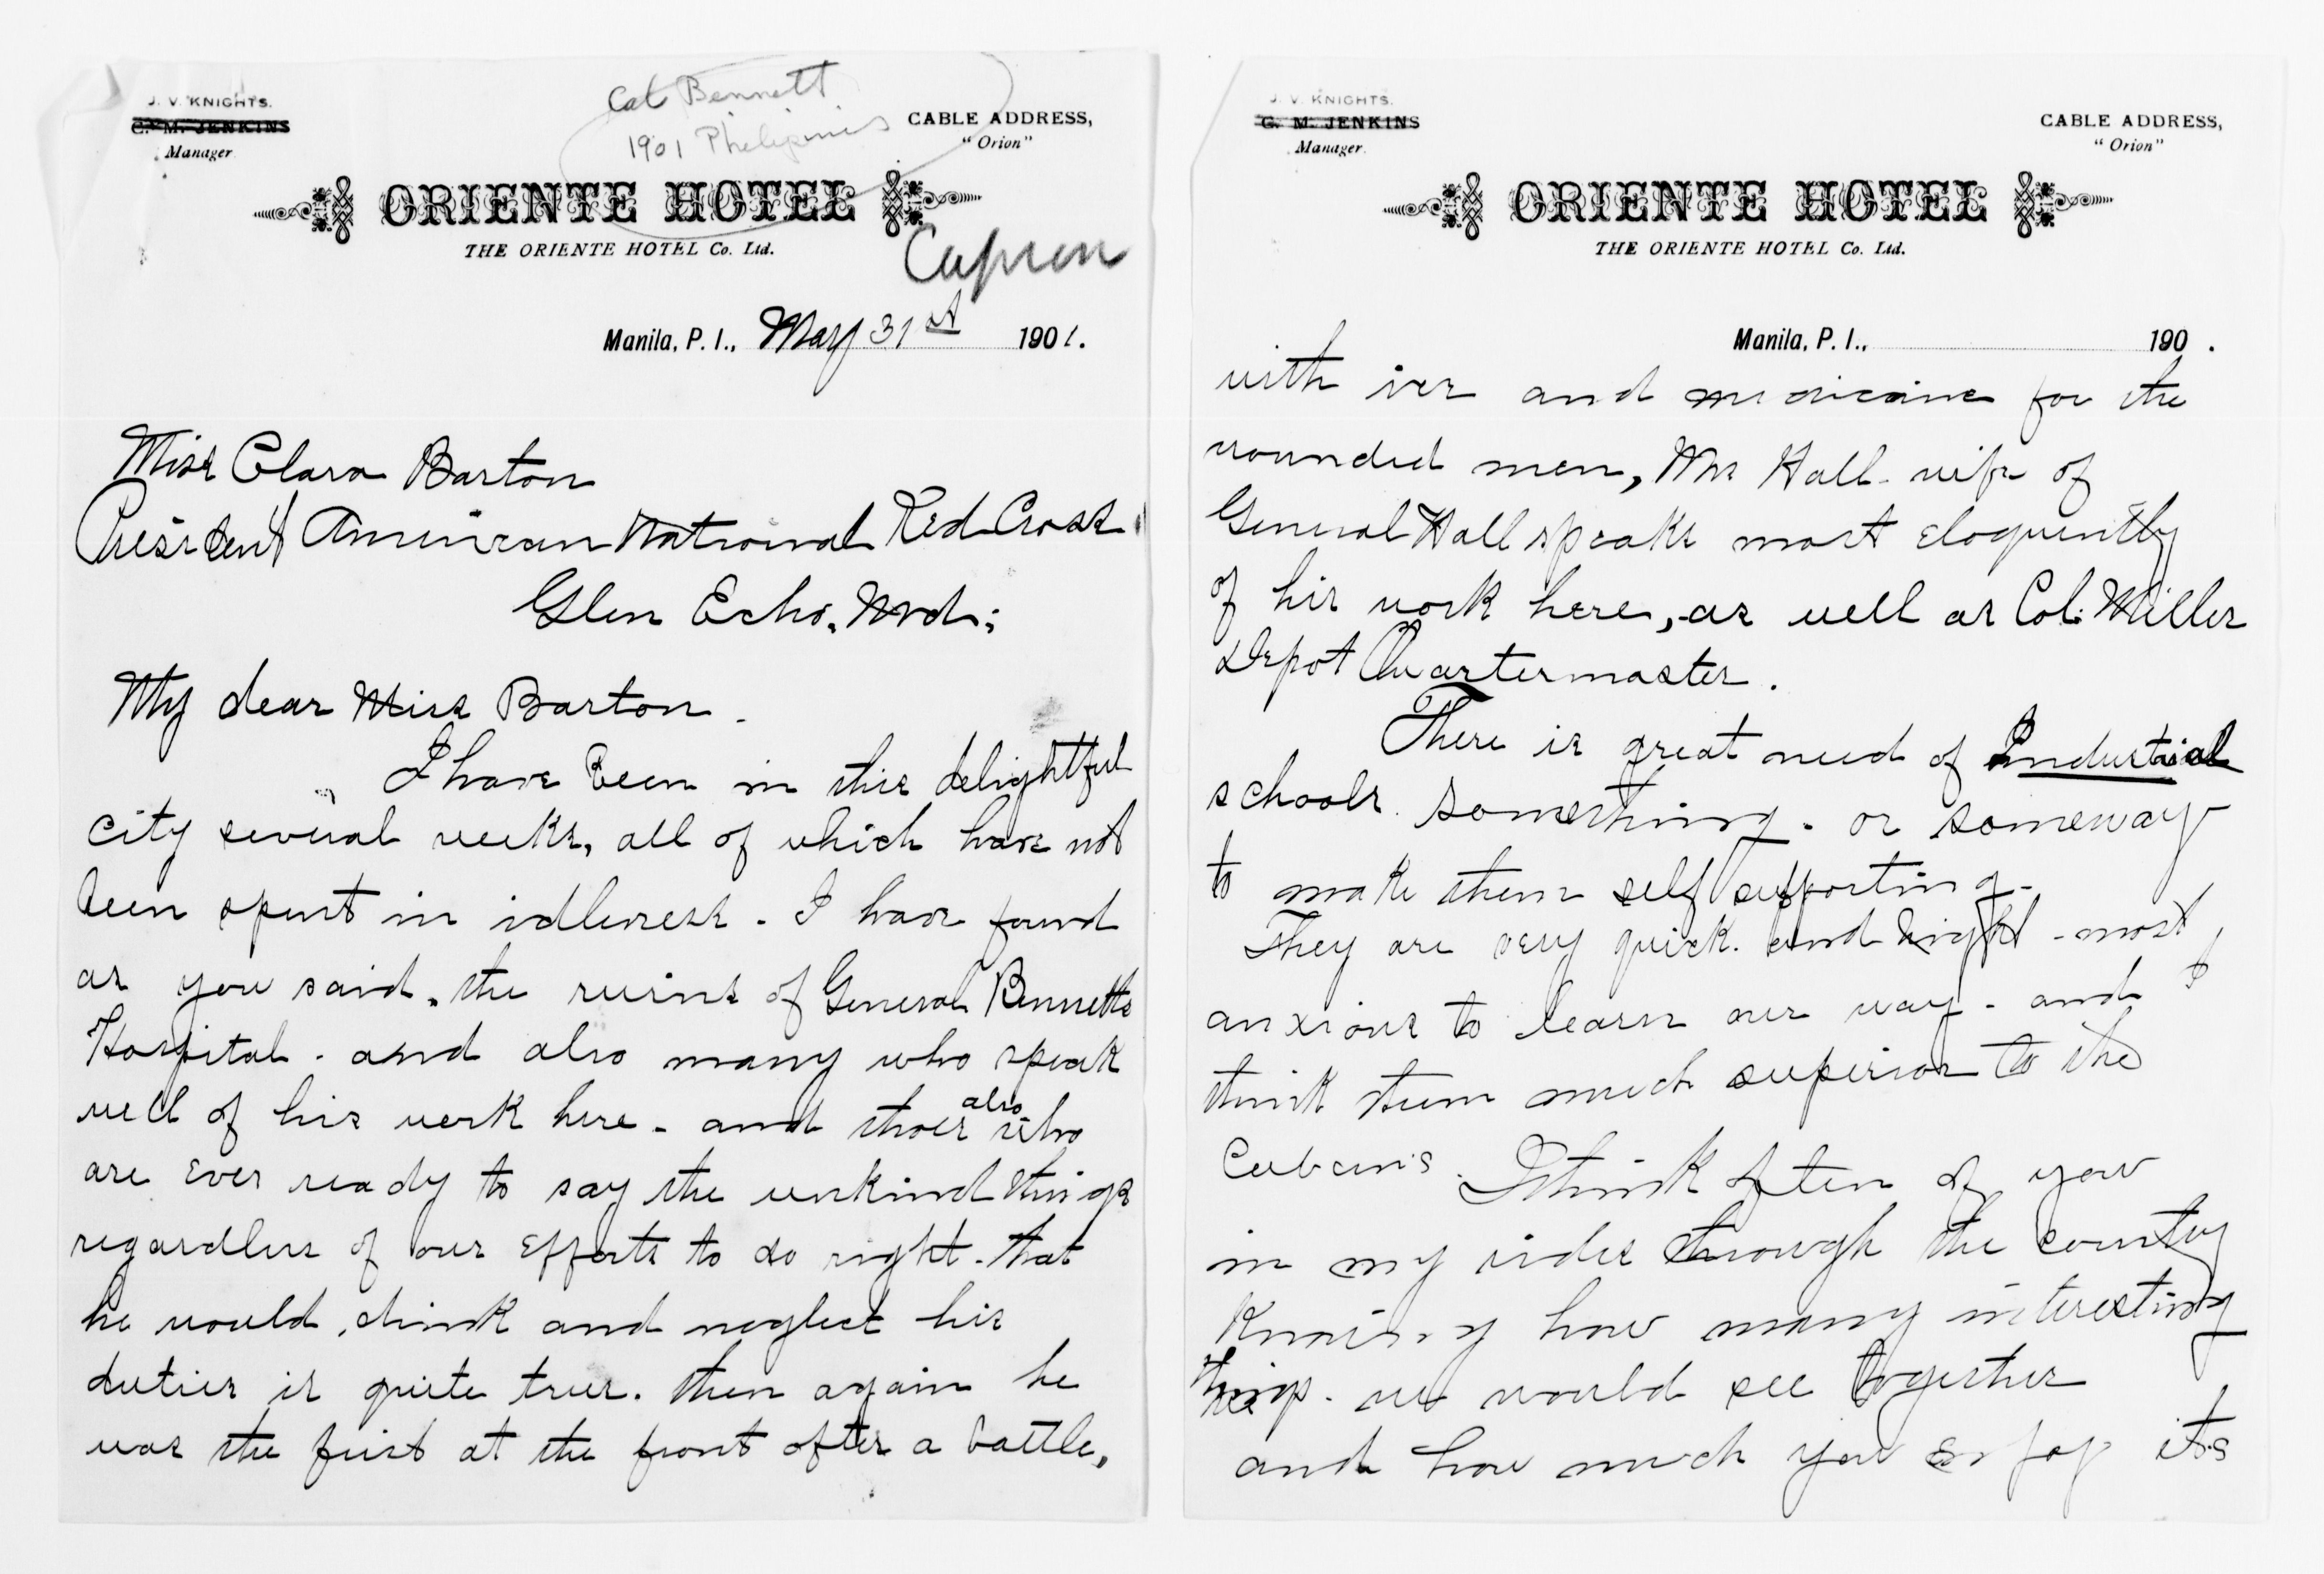 J. V. KNIGHTS.
C. M. JENKINS
Manager
Cat Bennett
1901 Philipines
CABLE ADDRESS,
"Orion"
ORIENTE HOTEL
THE ORIENTE HOTEL Co. Ltd.
Capron
Manila, P. I., May 31st 1901.
Miss Clara Barton
President American National Red Cross
Glen Echo. Md;
My dear Miss Barton.
I have been in this delightful
city several weeks, all of which have not
been spent in idleness - I have found
as you said, the ruins of General Bennetts
Hospital - and also many who speak
well of his work here - and those also who
are ever ready to say the unkind things
regardless of our efforts to do right. That
he would drink and neglect his
duties is quite true. then again he
was the first at the front after a battle,
J. V. KNIGHTS.
C. M. JENKINS
Manager.
CABLE ADDRESS,
"Orion"
ORIENTE HOTEL
THE ORIENTE HOTEL Co. Ltd.
Manila, P. I., 190 .
with ice and medicine for the
wounded men, Mrs Hall - wife of
General Hall speaks most eloquently
of his work here, as well as Col. Miller
Depot Quartermaster.
There is great need of Industrial
schools. something - or someway
to make them self supporting -
They are very quick. and bright - most
anxious to learn our way - and I
think them much superior to the
Cubans. I think often of you
in my rides through the country
knowing how many interesting
things - we would see together
and how much you enjoy its